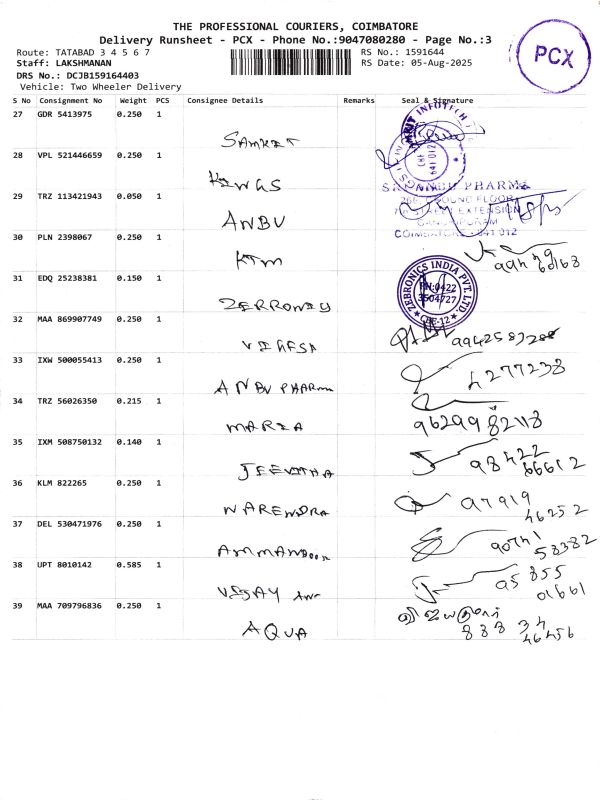 THE PROFESSIONAL COURIERS, COIMBATORE
Delivery Runsheet - PCX - Phone No.:9047080280 - Page No.:3
PCX
Route: TATABAD 3 4 5 6 7
RS No.: 1591644
Staff: LAKSHMANAN
RS Date: 05-Aug-2025
DRS No.: DCJB159164403
Vehicle: Two Wheeler Delivery
S No Consignment No Weight PCS Consignee Details Remarks Seal & Signature
27 GDR 5413975 0.250 1
SAMKET
28 VPL 521446659 0.250 1
KINGS
29 TRZ 113421943 0.050 1
ANBU
PHARMA
GROUND FLOOR
EXTENSION
COIMBATORE - 641 012
30 PLN 2398067 0.250 1
KTM
31 EDQ 25238381 0.150 1
ZEBRONICS INDIA PVT. LTD.
PH:0422
3504727
CBE-12
32 MAA 869907749 0.250 1
33 IXW 500055413 0.250 1
ANBU PHARMA
4277238
34 TRZ 56026350 0.215 1
MARIA
9629982118
35 IXM 508750132 0.140 1
JEEVITHA
98422
66612
36 KLM 822265 0.250 1
NARENDRA
97919
46252
37 DEL 530471976 0.250 1
90741
58382
38 UPT 8010142 0.585 1
VIJAY
95 855
01661
39 MAA 709796836 0.250 1
AQUA
விஜயகுமார்
888 34
46456